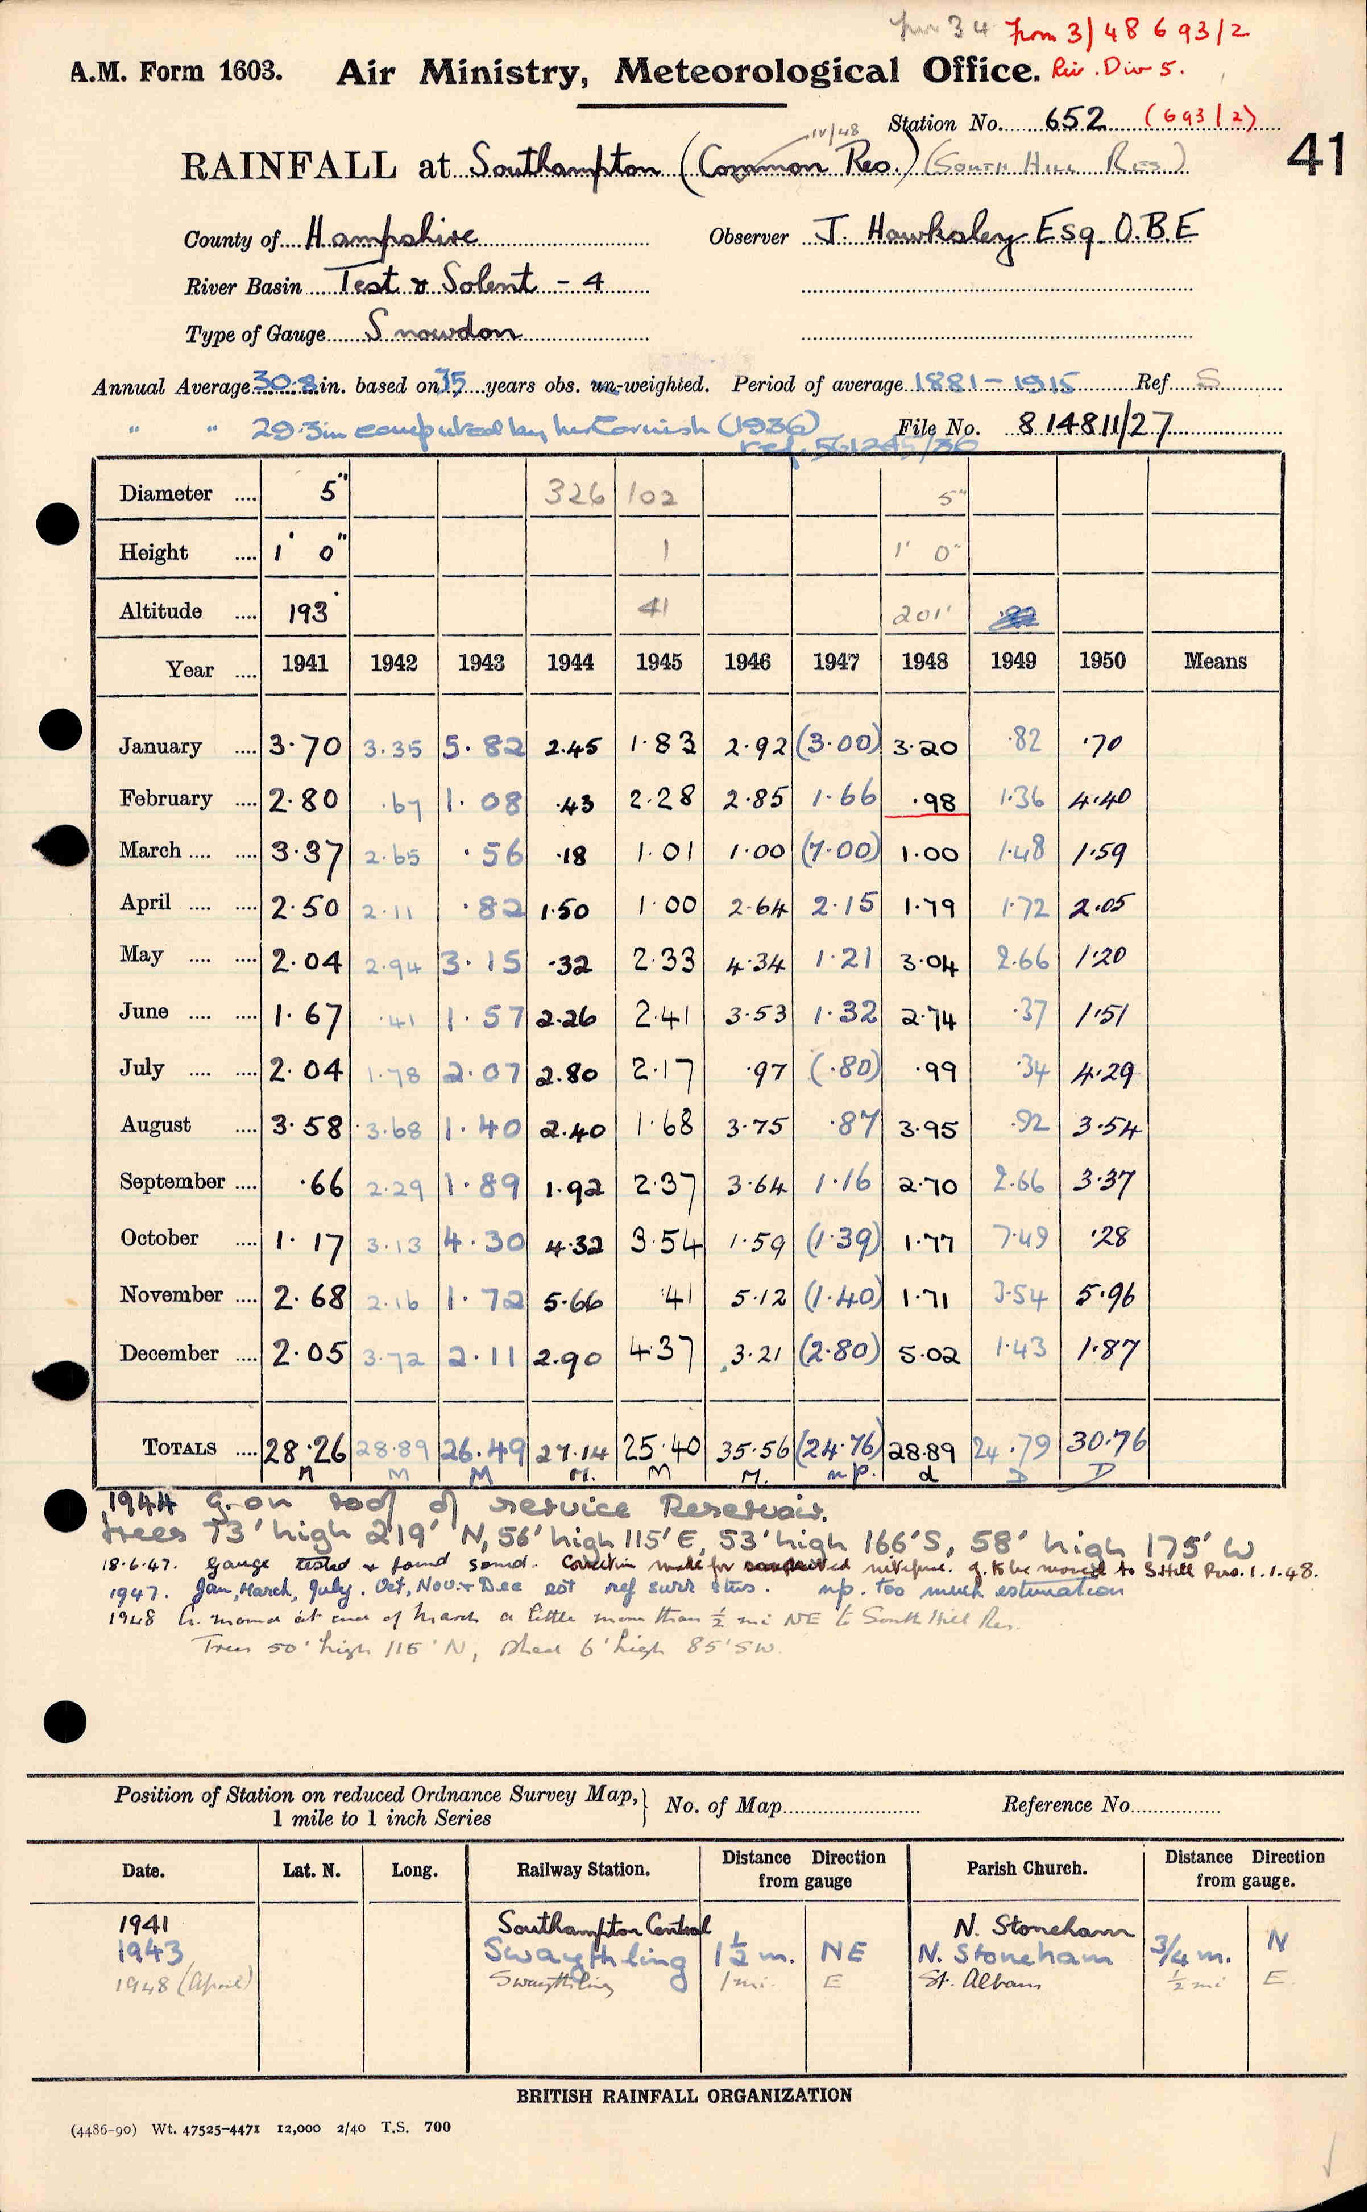 from 34 From 3/48 693/2
A.M. Form 1603. Air Ministry, Meteorological Office. Riv. Div 5.
Station No. 652 (693/2)
IV/48
RAINFALL at Southampton (Common Res.) (South Hill Res.) 41
County of Hampshire Observer J. Hawksley Esq. O.B.E
River Basin Test & Solent - 4
Type of Gauge Snowdon
Annual Average 30.8 in. based on 35 years obs. un-weighted. Period of average 1881-1915 Ref S
" " 29.3in computed by Mr Cornish (1936) File No. 814811/27
ref. 561245/36
Diameter .... 5" 326 102 5"
Height .... 1' 0" 1 1' 0"
Altitude .... 193' 41 201'
Year .... 1941 1942 1943 1944 1945 1946 1947 1948 1949 1950 Means
January .... 3.70 3.35 5.82 2.45 1.83 2.92 (3.00) 3.20 .82 .70
February .... 2.80 .67 1.08 .43 2.28 2.85 1.66 .98 1.36 4.40
March .... .... 3.37 2.65 .56 .18 1.01 1.00 (7.00) 1.00 1.48 1.59
April .... .... 2.50 2.11 .82 1.50 1.00 2.64 2.15 1.79 1.72 2.05
May .... .... 2.04 2.94 3.15 .32 2.33 4.34 1.21 3.04 2.66 1.20
June .... .... 1.67 .41 1.57 2.26 2.41 3.53 1.32 2.74 .37 1.51
July .... .... 2.04 1.78 2.07 2.80 2.17 .97 (.80) .99 .34 4.29
August .... 3.58 3.68 1.40 2.40 1.68 3.75 .87 3.95 .92 3.54
September .... .66 2.29 1.89 1.92 2.37 3.64 1.16 2.70 2.66 3.37
October .... 1.17 3.13 4.30 4.32 3.54 1.59 (1.39) 1.77 7.49 .28
November .... 2.68 2.16 1.72 5.66 .41 5.12 (1.40) 1.71 3.54 5.96
December .... 2.05 3.72 2.11 2.90 4.37 3.21 (2.80) 5.02 1.43 1.87
TOTALS .... 28.26 28.89 26.49 27.14 25.40 35.56 (24.76) 28.89 24.79 30.76
M M M M. M M. np. d D D
1944 G. on roof of service Reservoir.
trees 73' high 219' N, 56' high 115' E, 53' high 166' S, 58' high 175' W
18.6.47. Gauge tested & found sound. Correction made for missing. g. to be moved to S. Hill Res. 1.1.48.
1947. Jan, March, July, Oct, Nov. & Dec est ref surr stns. np. too much estimation
1948 G. moved at end of March a little more than ½ mi NE to South Hill Res.
Trees 50' high 115' N, shed 6' high 85' SW.
Position of Station on reduced Ordnance Survey Map, 1 mile to 1 inch Series No. of Map Reference No.
Date. Lat. N. Long. Railway Station. Distance Direction from gauge Parish Church. Distance Direction from gauge.
1941 Southampton Central N. Stoneham
1943 Swaythling 1½ m. NE N. Stoneham 3/4 m. N
1948 (April) Swaythling 1 mi. E St. Albans ½ mi E
BRITISH RAINFALL ORGANIZATION
(4486-90) Wt. 47525-4471 12,000 2/40 T.S. 700